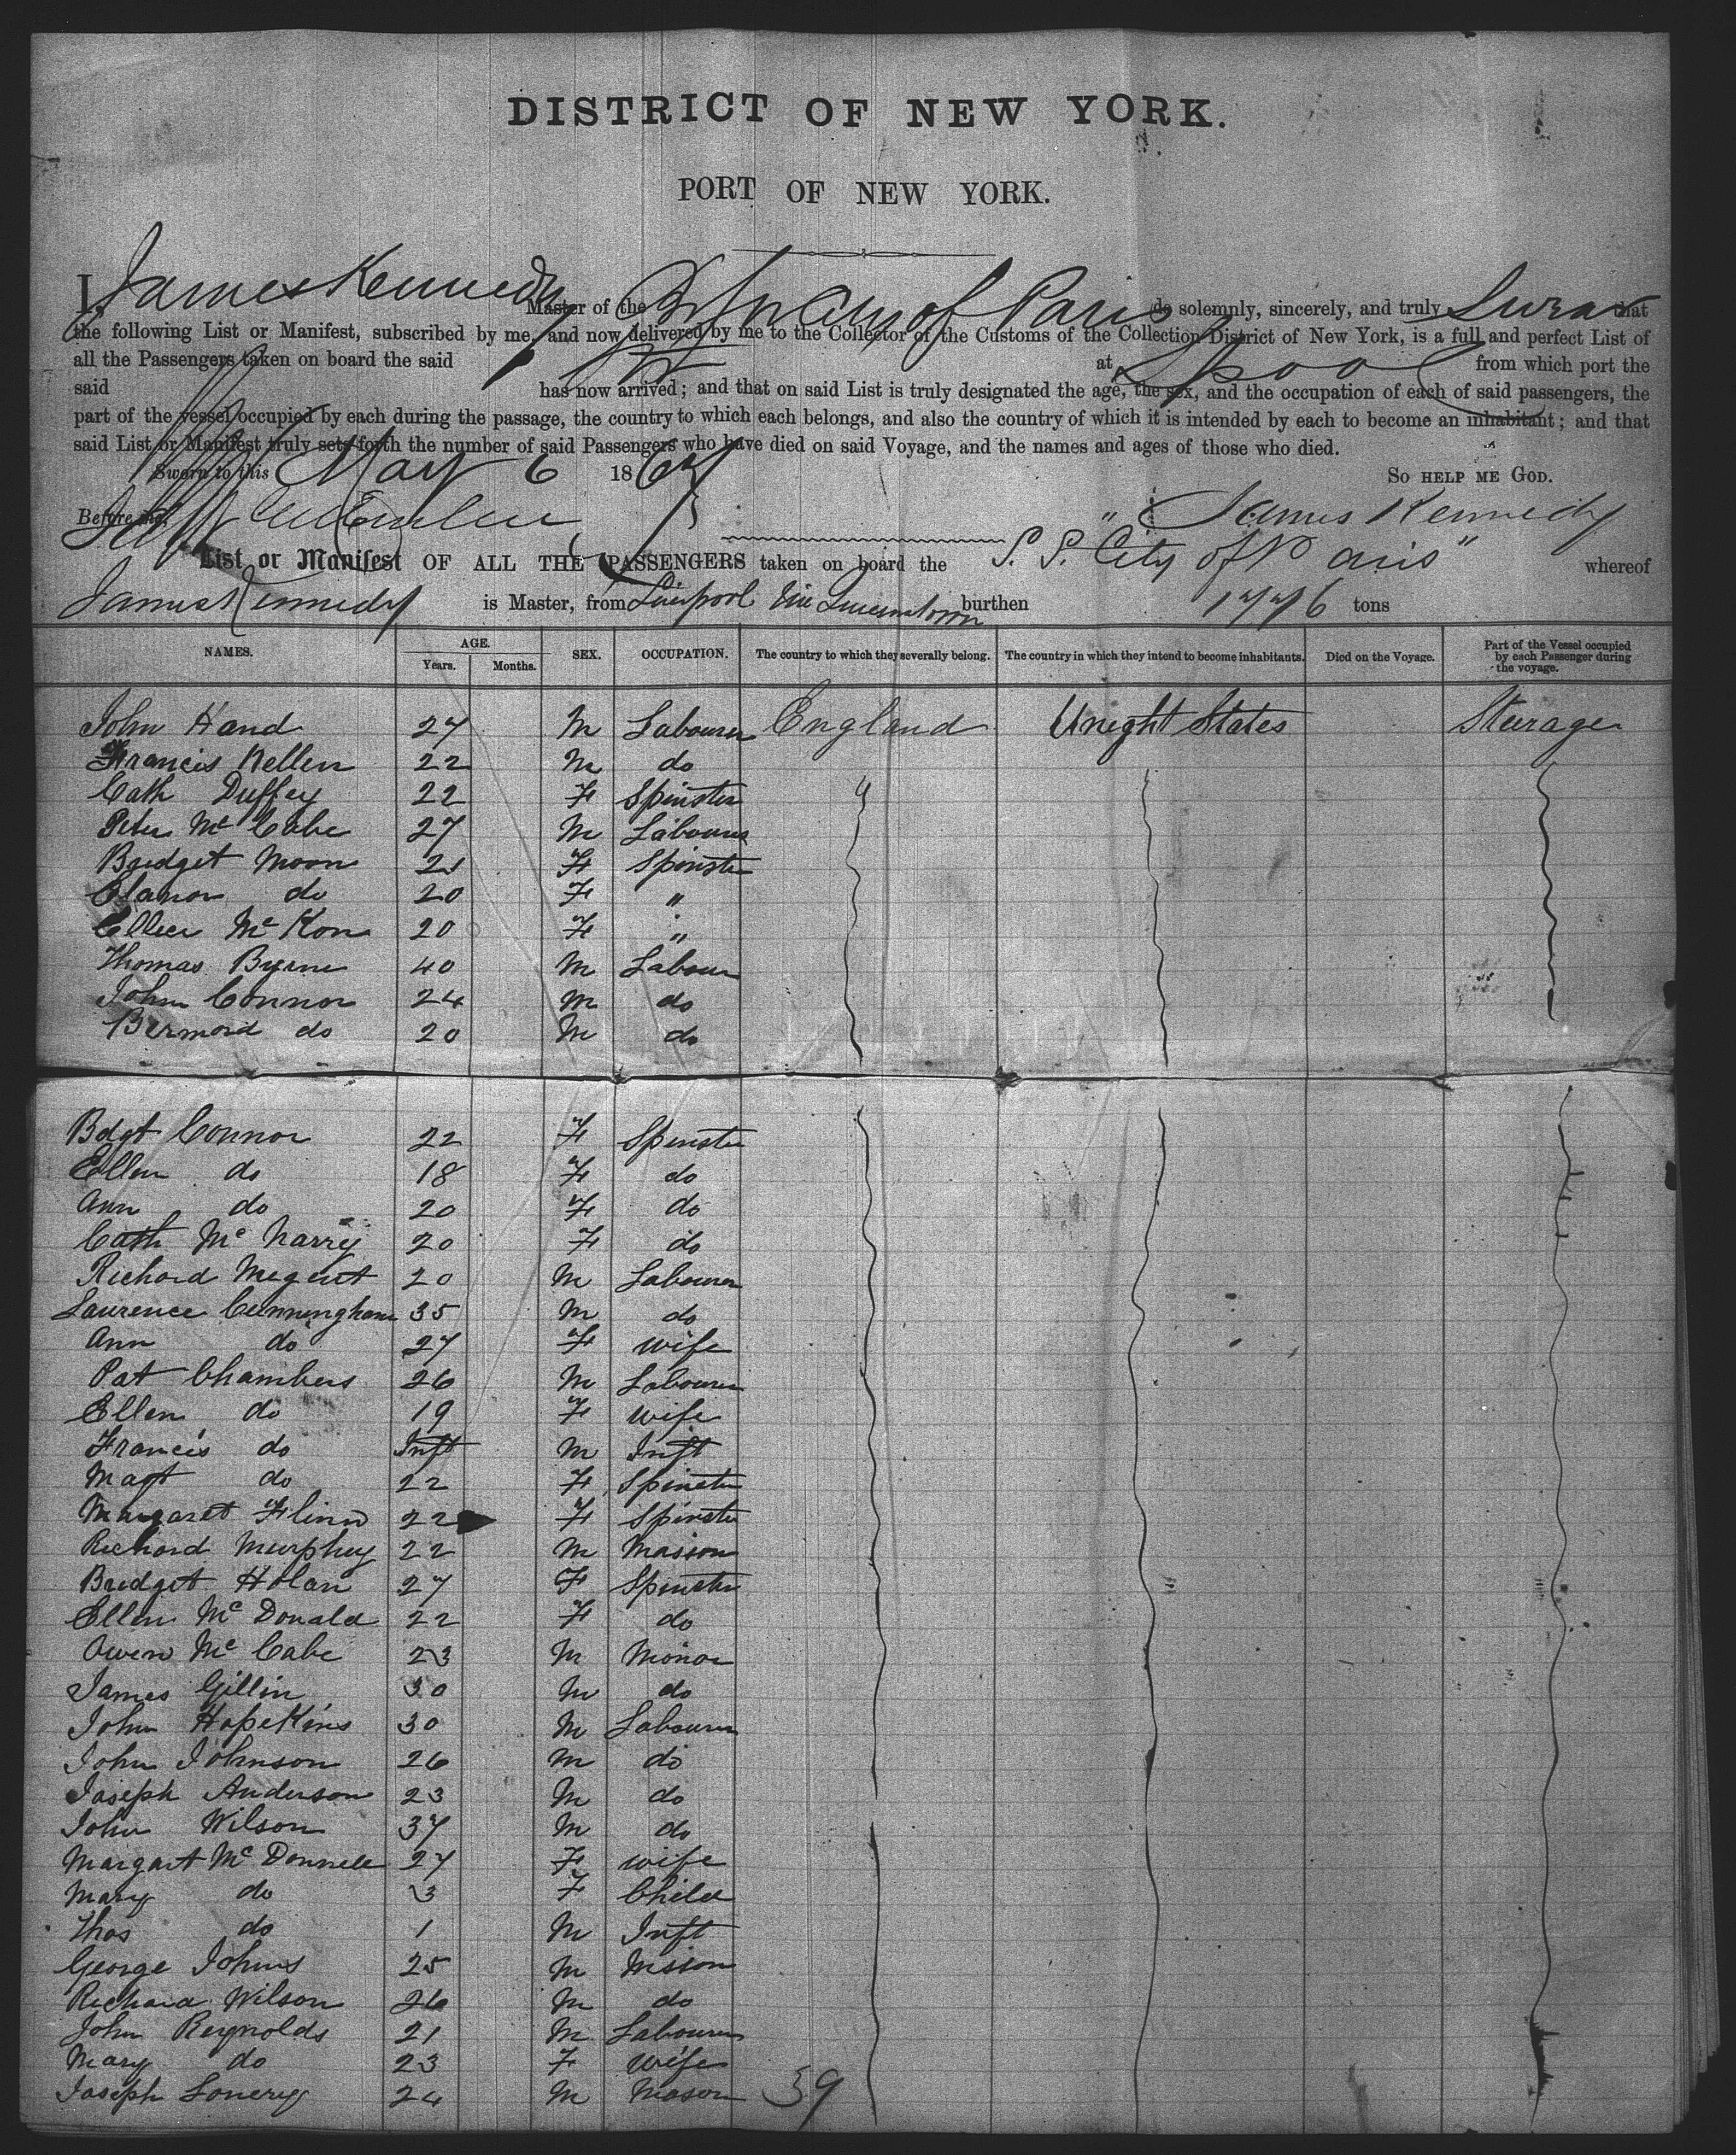 DISTRICT OF NEW YORK.
PORT OF NEW YORK.
I, James Kennedy Master of the City of Paris do solemnly, sincerely, and truly Swear that
the following List or Manifest, subscribed by me, and now delivered by me to the Collector of the Customs of the Collection District of New York, is a full and perfect List of
all the Passengers taken on board the said at Lpool from which port the
said has now arrived; and that on said List is truly designated the age, the sex, and the occupation of each of said passengers, the
part of the vessel occupied by each during the passage, the country to which each belongs, and also the country of which it is intended by each to become an inhabitant; and that
said List or Manifest truly sets forth the number of said Passengers who have died on said Voyage, and the names and ages of those who died.
Sworn to this May 6 1867 So HELP ME GOD.
Before me, James Kennedy
List or Manifest OF ALL THE PASSENGERS taken on board the S. S. "City of Paris" whereof
James Kennedy is Master, from Liverpool Via Queenstown burthen 1776 tons
NAMES. AGE. Years. Months. SEX. OCCUPATION. The country to which they severally belong. The country in which they intend to become inhabitants. Died on the Voyage. Part of the Vessel occupied by each Passenger during the voyage.
John Hand 27 M Labourer England Uneght States Sturage
Francis Kellen 22 M do
Cath Duffey 22 F Spinster
Peter Mc Cabe 27 M Labourer
Bridget Moon 21 F Spinster
Elanor do 20 F "
Ellen Mc Kon 20 F "
Thomas Byrne 40 M Labour
John Connor 24 M do
Bermord do 20 M do
Bdgt Connor 22 F Spinster
Ellen do 18 F do
Ann do 20 F do
Cath Mc Narry 20 F do
Richard Megent 20 M Labourer
Laurence Cunningham 35 M do
Ann do 27 F wife
Pat Chambers 26 M Labourer
Ellen do 19 F wife
Francis do Inft M Inft
Magt do 22 F Spinster
Margaret Flinn 22 F Spinster
Richard Murphey 22 M Masson
Bridget Holan 27 F Spinster
Ellen Mc Donald 22 F do
Owen Mc Cabe 23 M Minor
James Gillin 30 M do
John Hopekins 30 M Labourer
John Johnson 26 M do
Joseph Anderson 23 M do
John Wilson 37 M do
Margart Mc Donnell 27 F wife
Mary do 3 F Child
Thos do 1 M Inft
George Johns 25 M Mason
Richard Wilson 26 M do
John Reynolds 21 M Labourer
Mary do 23 F wife
Joseph Lonery 24 M Mason 39